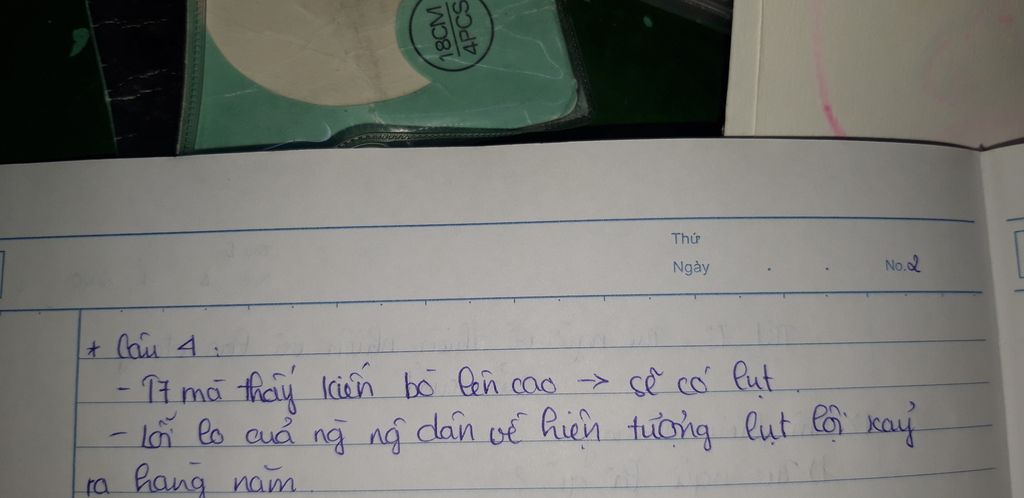 18CM
4PCS
Thứ
Ngày . . No.2
* Câu 4:
- T7 mà thấy kiến bò lên cao → sẽ có lụt.
- Lỗi lo cuả ng ng dân về hiện tượng lụt lội xaỷ
ra hàng năm.